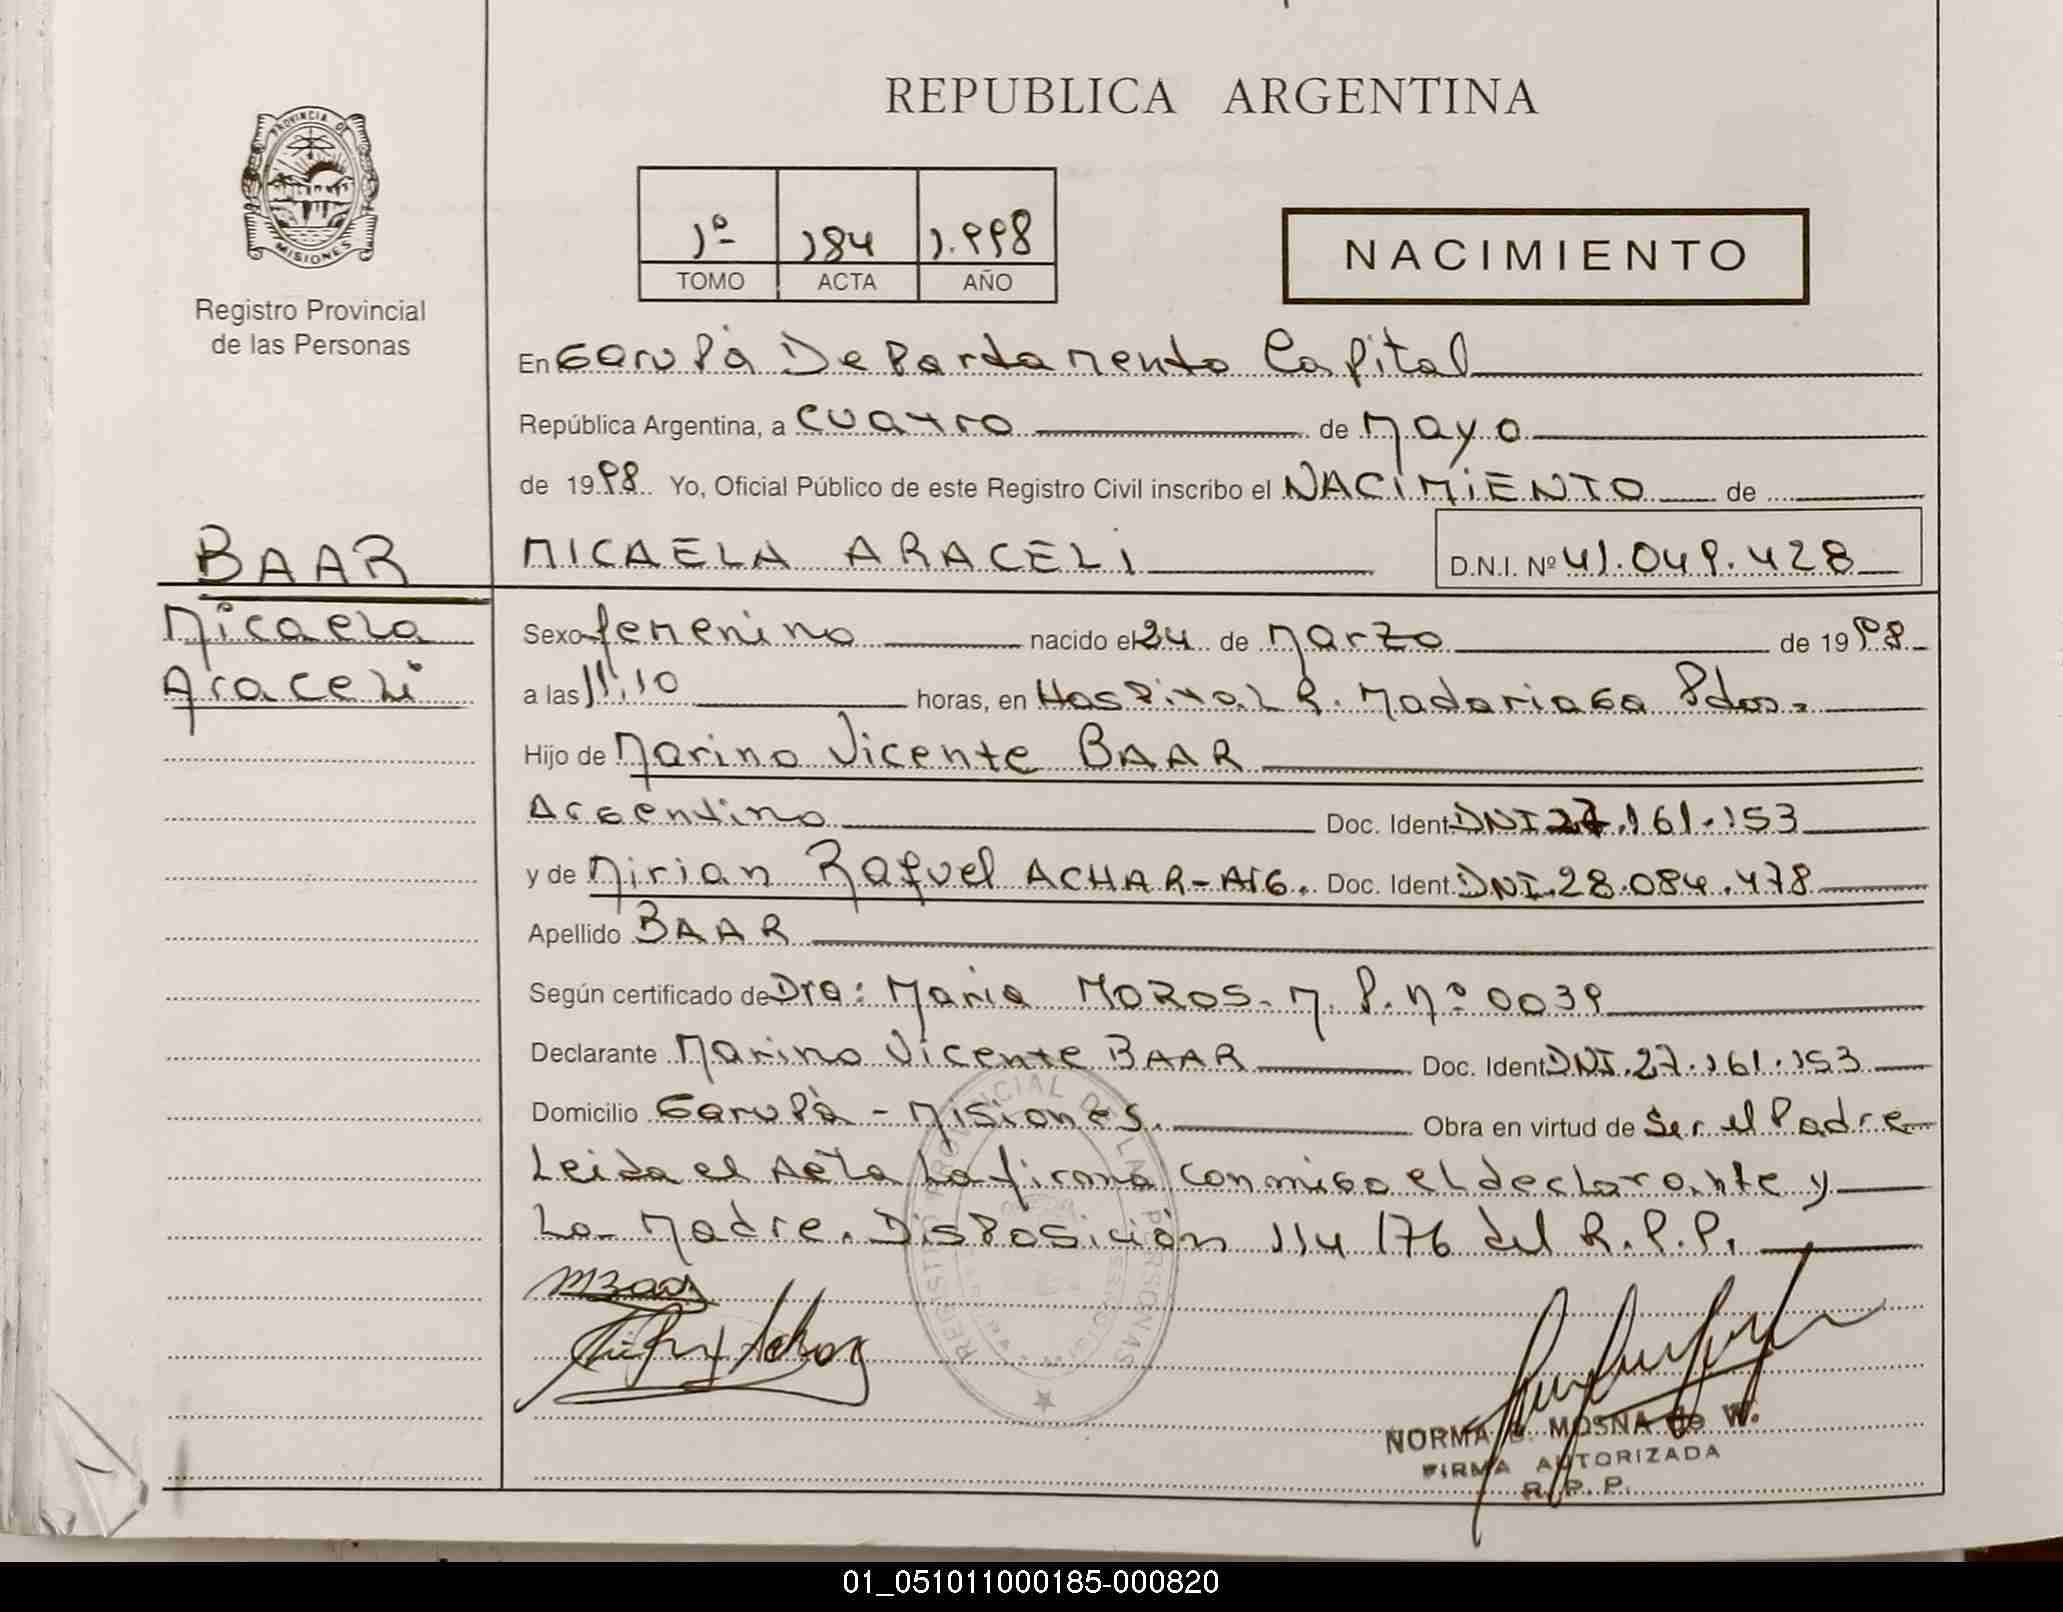 REPUBLICA ARGENTINA
PROVINCIA DE
MISIONES
Registro Provincial
de las Personas
1º 184 1.998
TOMO ACTA AÑO
NACIMIENTO
En Garupà Departamento Capital
República Argentina, a cuatro de Mayo
de 1998 Yo, Oficial Público de este Registro Civil inscribo el NACIMIENTO de
BAAR
Micaela
Araceli
MICAELA ARACELI D.N.I. Nº 41.049.428
Sexo femenino nacido el 24 de Marzo de 1998
a las 11:10 horas, en Hospital R. Madariaga Pdas.
Hijo de Marino Vicente BAAR
Argentino Doc. Ident. DNI 27.161.153
y de Mirian Raquel ACHAR-ArG. Doc. Ident. DNI.28.084.478
Apellido BAAR
Según certificado de Dra: Maria MOROS. M.P. Nº 0039
Declarante Marino Vicente BAAR Doc. Ident DNI.27.161.153
Domicilio Garupà - Misiones. Obra en virtud de Ser el Padre
Leida el Acta La firma conmigo el declarante y
La Madre. Disposición 114/76 del R.P.P.
REGISTRO PROVINCIAL DE LAS PERSONAS
NORMA MOSNA de W.
FIRMA AUTORIZADA
R. P. P.
01_051011000185-000820